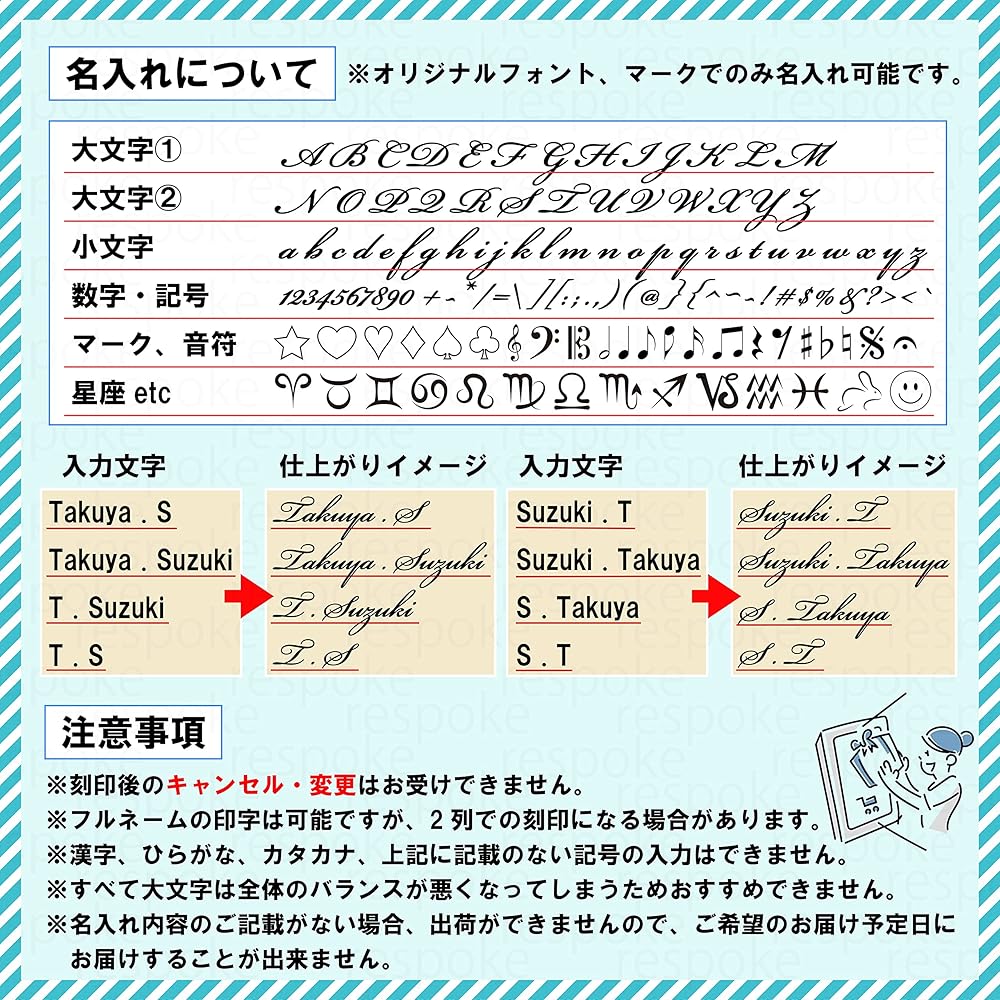 名入れについて ※オリジナルフォント、マークでのみ名入れ可能です。
大文字① ABCDEFGHIJKLM
大文字② NOPQRSTUVWXYZ
小文字 abcdefghijklmnopqrstuvwxyz
数字・記号 1234567890+-*/=\][:;.,)(@}{^~-!#$%&?><`
マーク、音符 ☆♡♡♢♤♧𝄞𝄢𝄡
星座 etc ♈♉♊♋♌♍♎♏♐♑♒♓
入力文字 仕上がりイメージ 入力文字 仕上がりイメージ
Takuya . S Takuya . S Suzuki . T Suzuki . T
Takuya . Suzuki Takuya . Suzuki Suzuki . Takuya Suzuki . Takuya
T . Suzuki T . Suzuki S . Takuya S . Takuya
T . S T . S S . T S . T
注意事項
※刻印後のキャンセル・変更はお受けできません。
※フルネームの印字は可能ですが、2列での刻印になる場合があります。
※漢字、ひらがな、カタカナ、上記に記載のない記号の入力はできません。
※すべて大文字は全体のバランスが悪くなってしまうためおすすめできません。
※名入れ内容のご記載がない場合、出荷ができませんので、ご希望のお届け予定日に
お届けすることが出来ません。